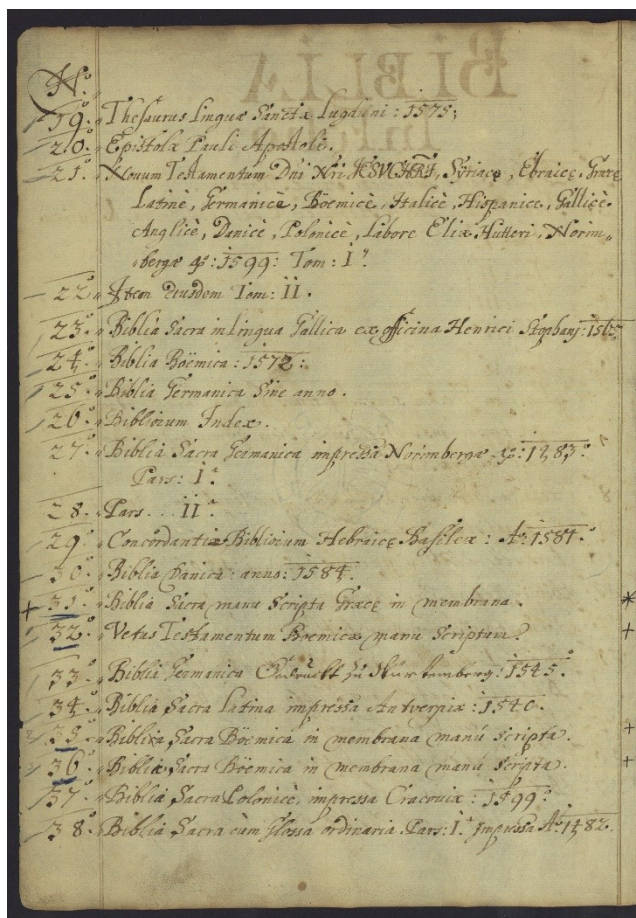 N.º
19.º Thesaurus Linguæ Sanctæ Lugduni: 1575;
20.º Epistolæ Pauli Apostoli.
21.º Novum Testamentum Dni Nri IESV CHRI, Syriacę, Ebraicę, Gręcę
Latinè, Germanicè, Böemicè, Italicè, Hispanicè, Gallicè.
Anglicè, Danicè, Polonicè, Labore Eliæ Hutteri, Norim„
bergæ aº: 1599: Tom: I.º
22.º Item eiusdem Tom: II.
23.º Biblia Sacra in Lingua Gallica ex officina Henrici Stephanj: 1565.
24.º Biblia Böemica: 1572:
25.º Biblia Germanica Sine anno.
26.º Bibliorum Index.
27.º Biblia Sacra Germanica impressa Norimbergæ aº: 1483:
Pars: I.ª
28. Pars... II.ª
29.º Concordantiæ Bibliorum Hebraicę Basileæ: Aº: 1584.
30.º Biblia Danica: anno: 1584.
+ 31.º Biblia Sacra manu Scripta Græcę in membrana. *
32.º Vetus Testamentum Boemicæ manu Scriptum. +
33.º Biblia Germanica Gedruckt zu Wurtemberg: 1545.
34.º Biblia Sacra Latina impressa Antverpiæ: 1540.
35.º Biblia Sacra Böemica in membrana manú Scripta. +
36.º Biblia Sacra Böemica in membrana manú Scripta. +
37.º Biblia Sacra Polonicè, impressa Cracoviæ: 1599:
38.º Biblia Sacra cum Glossa ordinaria. Pars: I.ª impressa Aº 1482.